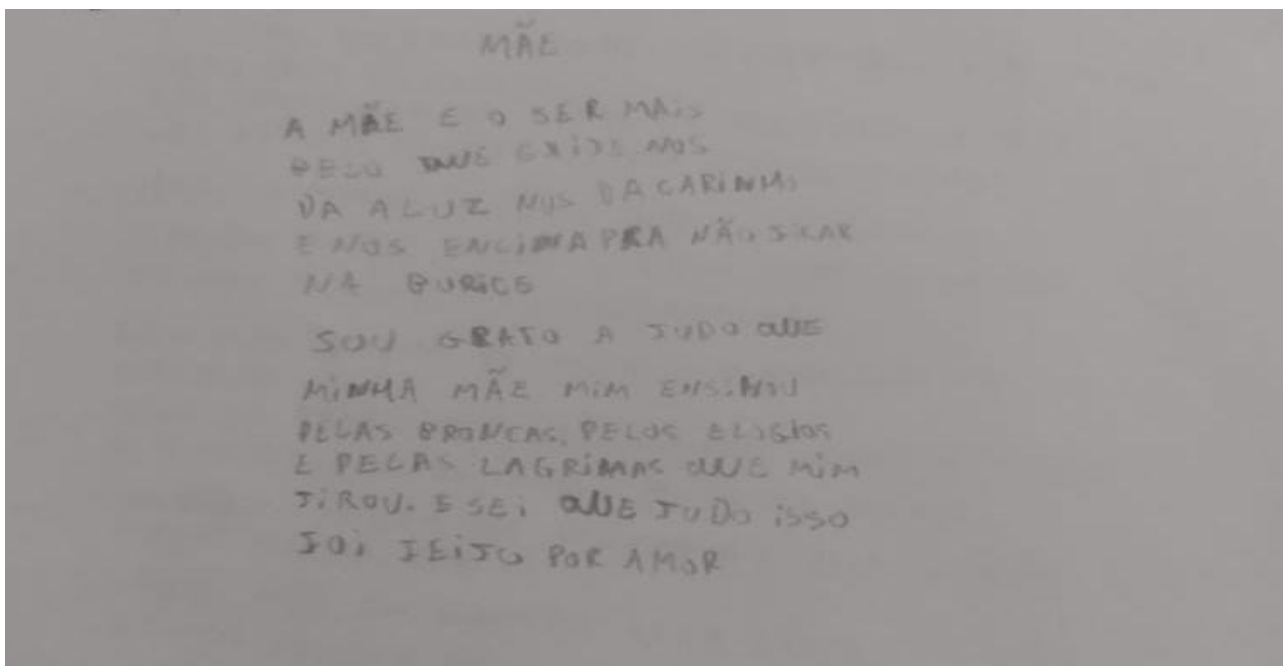 MÃE
A MÃE E O SER MAIS
BELO QUE EXISTE NOS
DA A LUZ NOS DA CARINHO
E NOS ENCINA PRA NÃO FICAR
NA BURICE
SOU GRATO A TUDO QUE
MINHA MÃE MIM ENSINOU
PELAS BRONCAS, PELOS ELOGIOS
E PELAS LAGRIMAS QUE MIM
TIROU. E SEI QUE TUDO ISSO
FOI FEITO POR AMOR